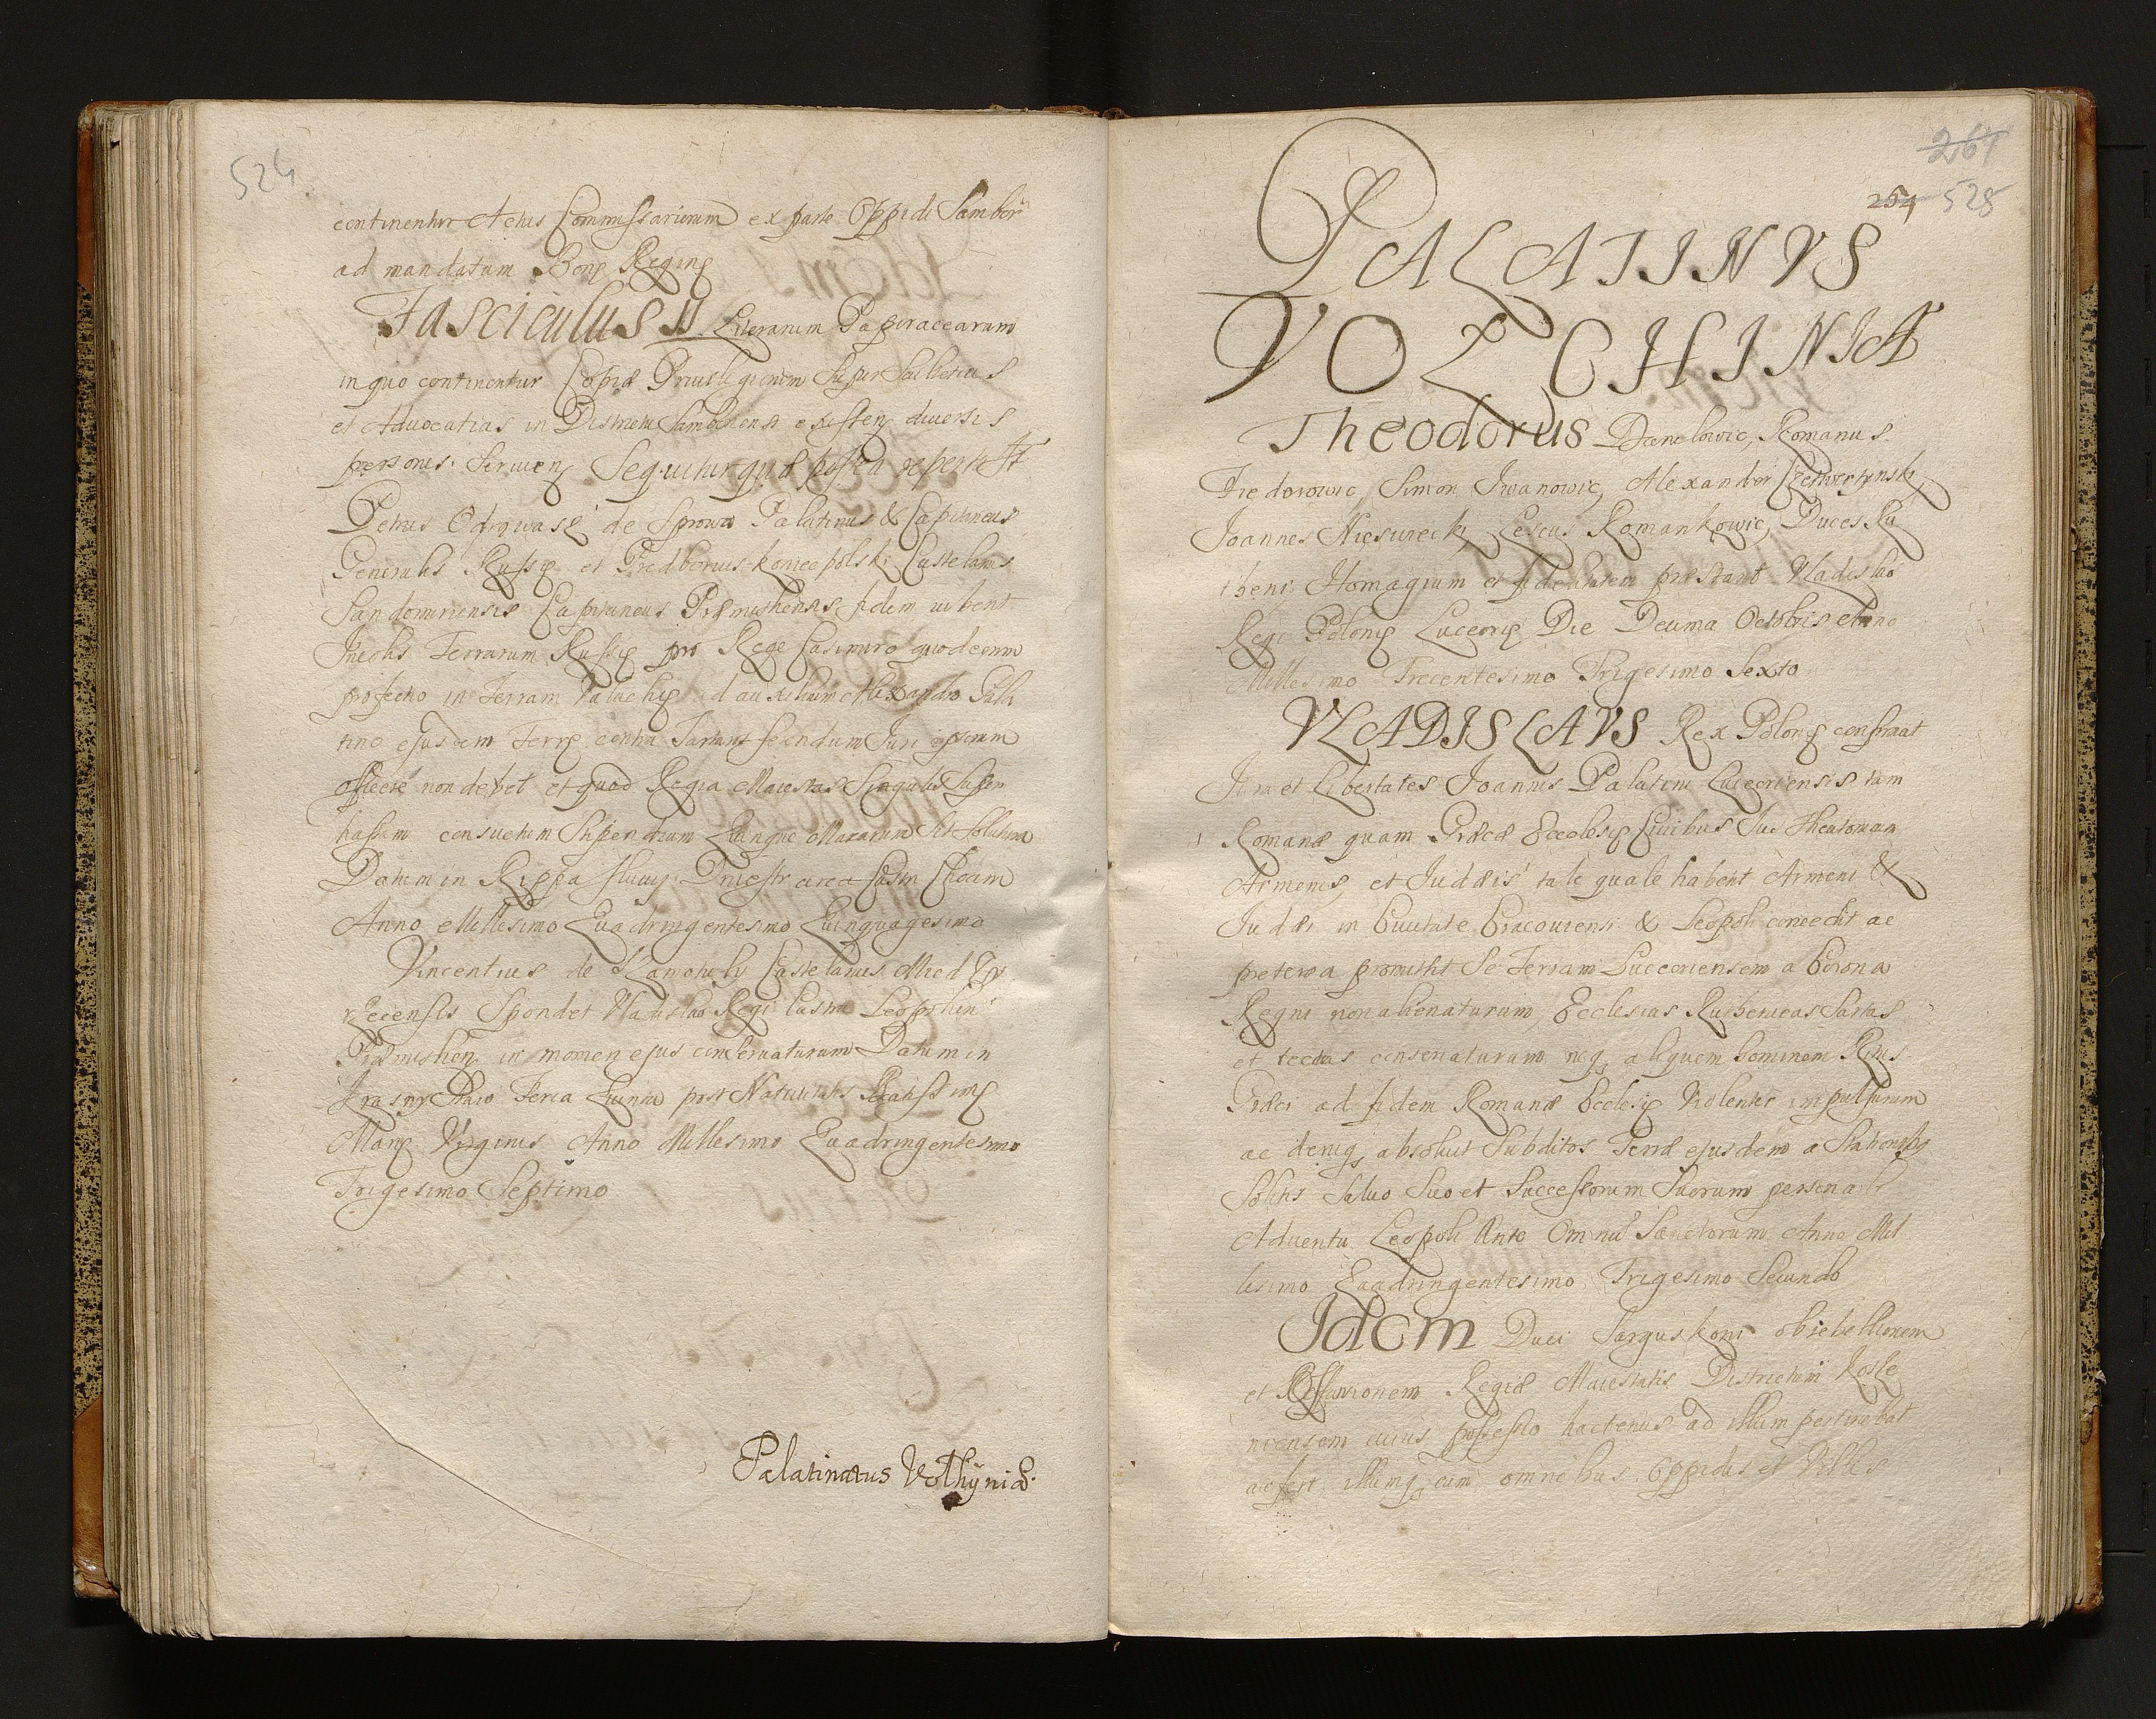 524
continentur Actus Commissariorum ex parte Oppidi Sambor
ad mandatum Bonę Reginę
Fasciculus II Literarum Papiracearum
in quo continentur Copiæ Priuilegiorum Super Scultetias
et Aduocatias in Districtu Samboriensi existen diuersis
personis Seruien Sequuntur quæ postea reperta st
Petrus Odrowasz de Sprowa Palatinus & Capitaneus
Generalis Russię et Predborius Koniecpolski Castelanus
Sandomiriensis Capitaneus Præmisliensis fidem iubent
Incolis Terrarum Russię pro Rege Casimiro quod eorum
profectio in Terram Valachię ad auxilium Alexandro Pala
tino ejusdem Terrę contra Tartaros Juri ipsorum
officere non debet et quod Regia Maiestas Singulis Super
hastam consuetum Stipendium Quinque Marcarum Sit Solutura
Datum in Rippa fluuij Dniestr circa Castrum Chocim
Anno Millesimo Quadringentesimo Quinquagesimo
Vincentius de Szamotuly Castelanus Mied Zy
rzecensis Spondet Vladislao Regi Castra Leopolien
Præmislien in nomen ejus conseruaturum Datum in
Krasny Staw Feria Quinta post Natiuitatis Beatissimę
Marię Virginis Anno Millesimo Quadringentesimo
Trigesimo Septimo
Palatinatus Volhyniæ.
264
264 525
PALATINVS
VOLCHINIÆ
Theodorus Danelowic, Romanus
Fiedorowic, Simon Iwanowic, Alexander Czetwertynski,
Joannes Niesuiecki, Lescus Romankowic, Duces Ru
theni Homagium et fidelitatem præstant Vladislao
Regi Polonię Luceorię Die Decima Octobris Anno
Millesimo Trecentesimo Trigesimo Sexto
VLADISLAVS Rex Polonię confirmat
Jura et Libertates Joannis Palatini Luceoriensis tam
Romanæ quam Græcæ Ecclesię Ciuibus Jus Theutonicum
Armenis, et Judæis tale quale habent Armeni &
Judæi in Ciuitate Cracouiensi & Leopoli concedit ac
preterea promisit Se Terram Luceoriensem a Corona
Regni non alienaturum, Ecclesias Ruthenicas Sartas
et tectas conseruaturum neq, aliquem hominem Ritus
Græci ad fidem Romanæ Ecclesię Violenter impulsurum
ac deniq, absoluit Subditos Terræ ejusdem a Stationibus
Solitis Saluo Suo et Successorum Suorum personali
Aduentu Leopoli Ante Omniũ Sanctorum Anno Mil
lesimo Quadringentesimo Trigesimo Secundo
Idem Duci Jarguskoni ob rebellionem
et Regiæ Maiestatis Districtum Kosle
niensem cuius possessio hactenus ad illum pertinebat
aufert illumq, cum omnibus Oppidis et Villis